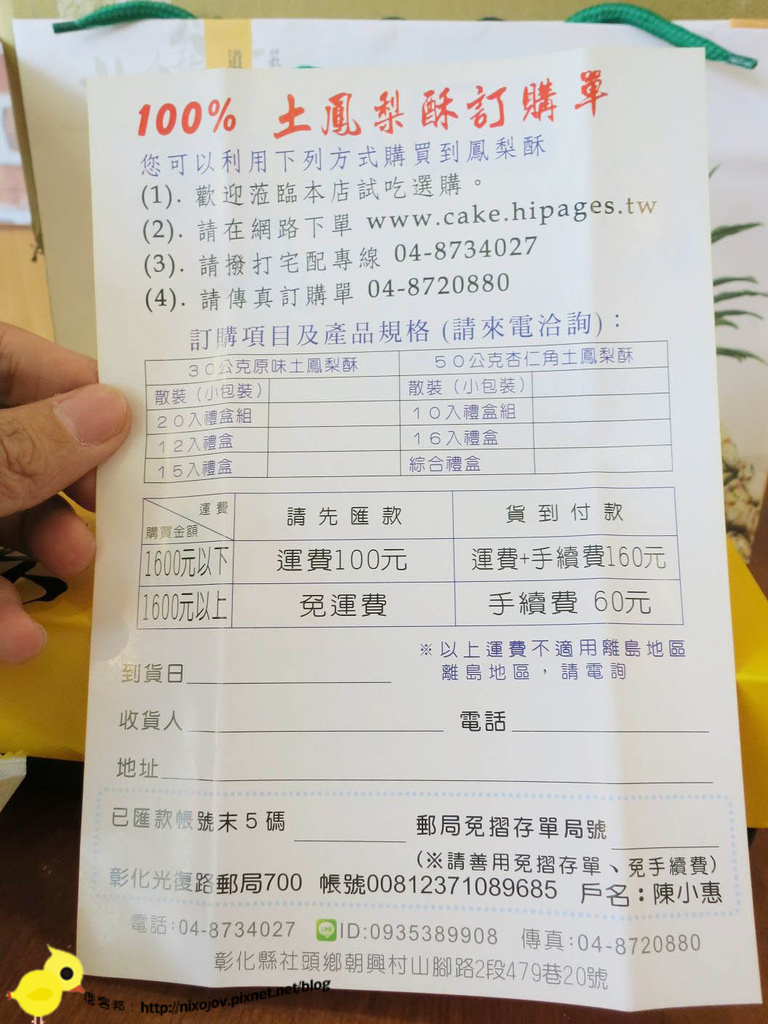 100% 土鳳梨酥訂購單
您可以利用下列方式購買到鳳梨酥
(1). 歡迎蒞臨本店試吃選購。
(2). 請在網路下單 www.cake.hipages.tw
(3). 請撥打宅配專線 04-8734027
(4). 請傳真訂購單 04-8720880
訂購項目及產品規格 (請來電洽詢)：
30公克原味土鳳梨酥 50公克杏仁角土鳳梨酥
散裝（小包裝） 散裝（小包裝）
20入禮盒組 10入禮盒組
12入禮盒 16入禮盒
15入禮盒 綜合禮盒
運費
購買金額 請先匯款 貨到付款
1600元以下 運費100元 運費+手續費160元
1600元以上 免運費 手續費 60元
※以上運費不適用離島地區
離島地區，請電詢
到貨日
收貨人 電話
地址
已匯款帳號末5碼 郵局免摺存單局號
(※請善用免摺存單、免手續費)
彰化光復路郵局700 帳號00812371089685 戶名：陳小惠
電話:04-8734027 LINE ID:0935389908 傳真:04-8720880
彰化縣社頭鄉朝興村山腳路2段479巷20號
痞客邦：http://nixojov.pixnet.net/blog